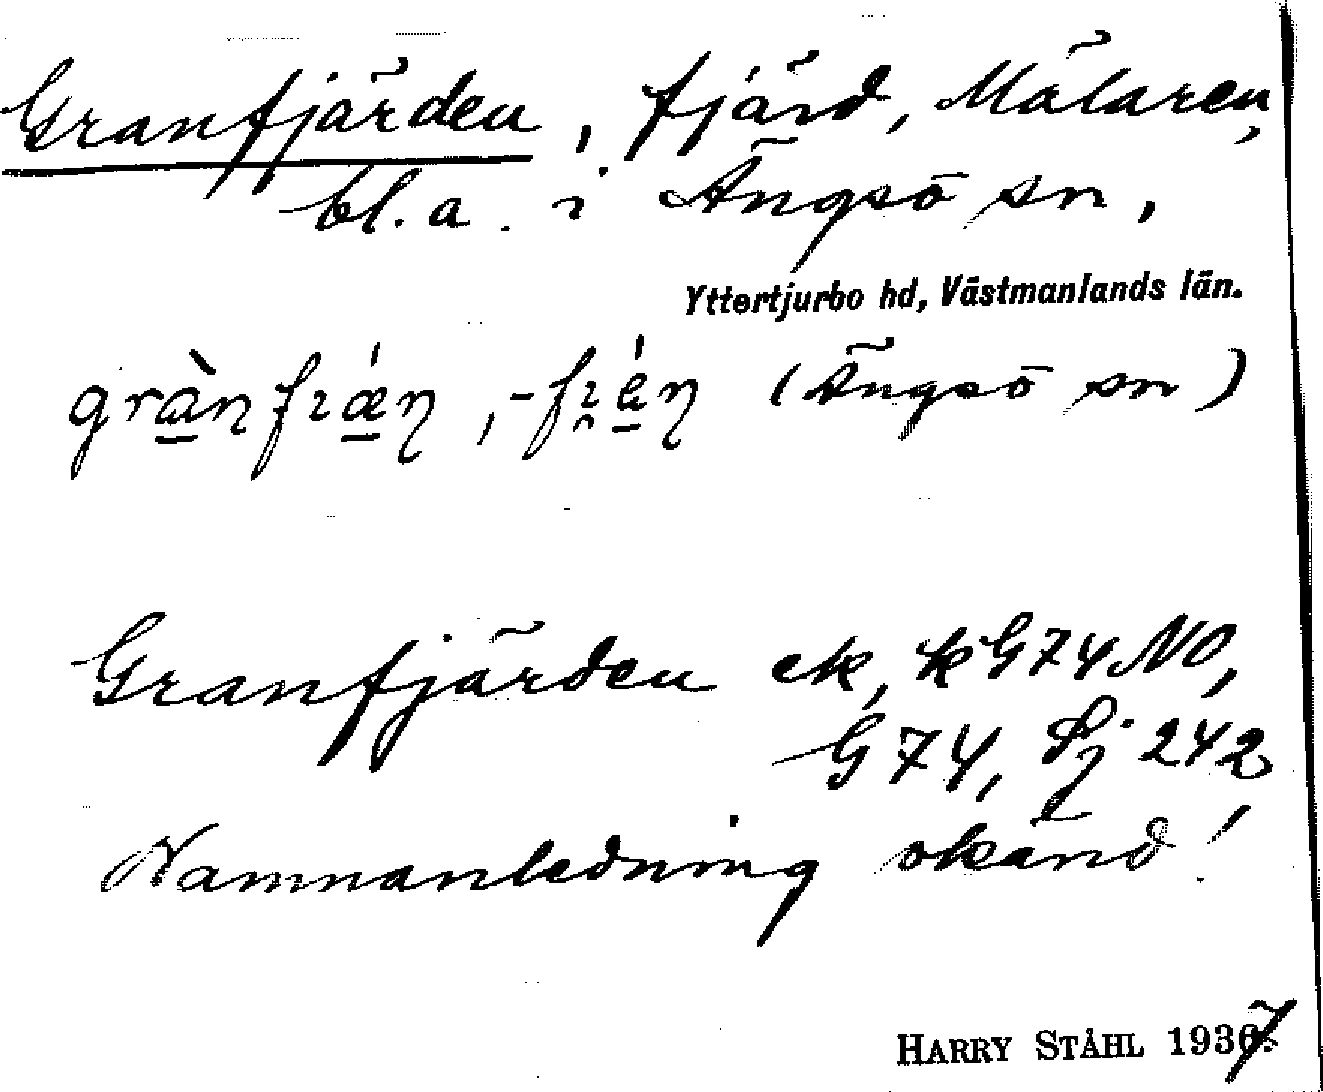 Granfjärden, fjärd, Mälaren,
bl.a. i Ängsö sn,
Yttertjurbo hd, Västmanlands län.
(Ängsö sn)
Granfjärden ek, k G74 NO,
G 74, Sj. 242
Namnanledning okänd!
HARRY STÅHL 1937